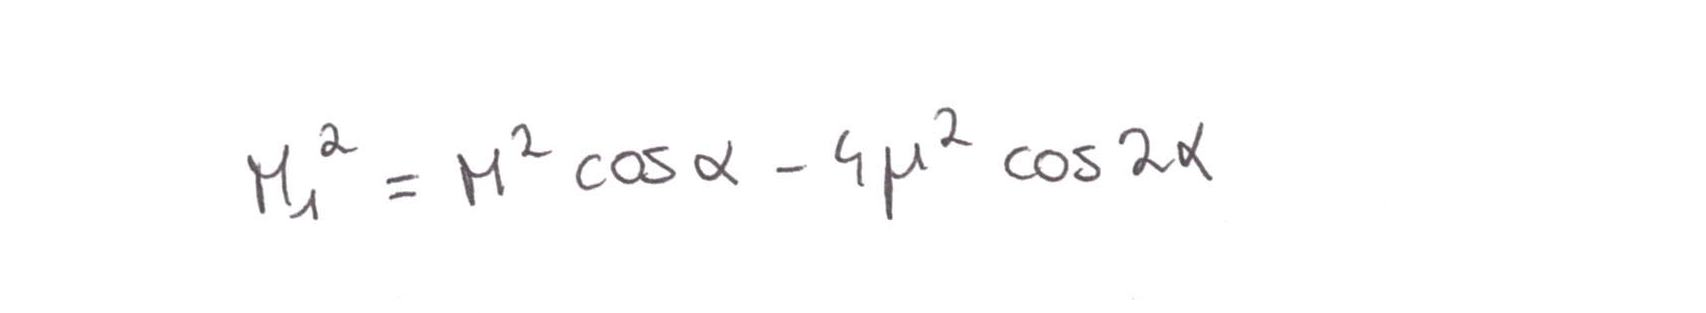 M₁² = M² cos α - 4μ² cos 2α